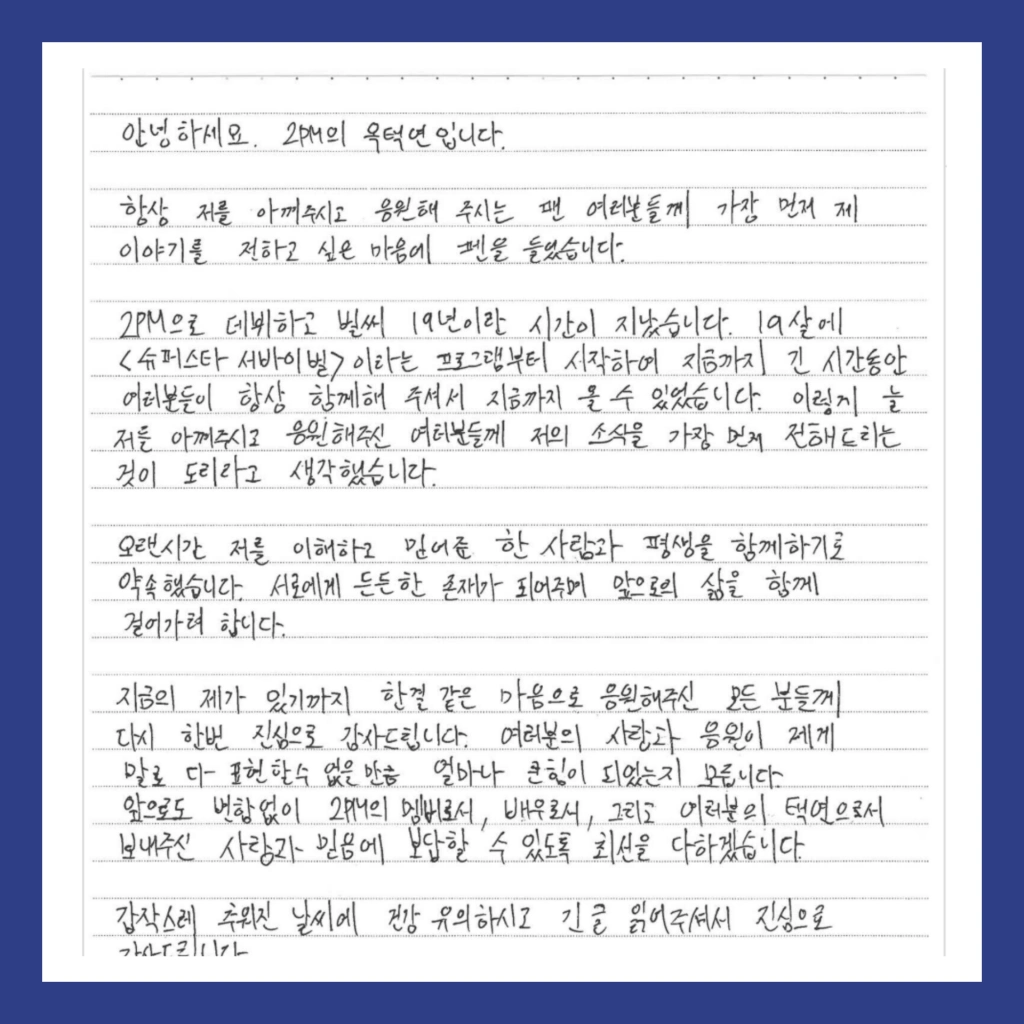 안녕하세요. 2PM의 옥택연입니다.
항상 저를 아껴주시고 응원해 주시는 팬 여러분들께 가장 먼저 제
이야기를 전하고 싶은 마음에 펜을 들었습니다.
2PM으로 데뷔하고 벌써 19년이란 시간이 지났습니다. 19살에
<슈퍼스타 서바이벌>이라는 프로그램부터 시작하여 지금까지 긴 시간동안
여러분들이 항상 함께해 주셔서 지금까지 올 수 있었습니다. 이렇게 늘
저를 아껴주시고 응원해주신 여러분들께 저의 소식을 가장 먼저 전해드리는
것이 도리라고 생각했습니다.
오랜시간 저를 이해하고 믿어준 한 사람과 평생을 함께하기로
약속했습니다. 서로에게 든든한 존재가 되어주며 앞으로의 삶을 함께
걸어가려 합니다.
지금의 제가 있기까지 한결 같은 마음으로 응원해주신 모든 분들께
다시 한번 진심으로 감사드립니다. 여러분의 사랑과 응원이 제게
말로 다 표현할수 없을만큼 얼마나 큰힘이 되었는지 모릅니다.
앞으로도 변함없이 2PM의 멤버로서, 배우로서, 그리고 여러분의 택연으로서
보내주신 사랑과 믿음에 보답할 수 있도록 최선을 다하겠습니다.
갑작스레 추워진 날씨에 건강 유의하시고 긴 글 읽어주셔서 진심으로
감사드립니다